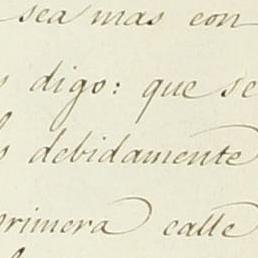 sea mas con
s digo: que se
s debidamente
primera calle